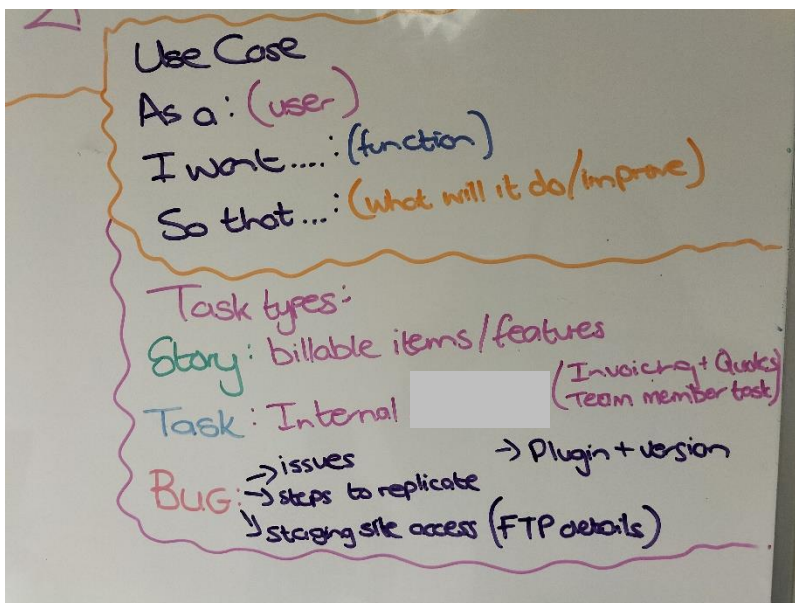 Use Case
As a: (user)
I want....: (function)
So that...: (what will it do/improve)
Task types:
Story: billable items/features
Task: Internal (Invoicing + Quotes
Team member task)
Bug: → issues → Plugin + version
→ steps to replicate
→ staging site access (FTP details)